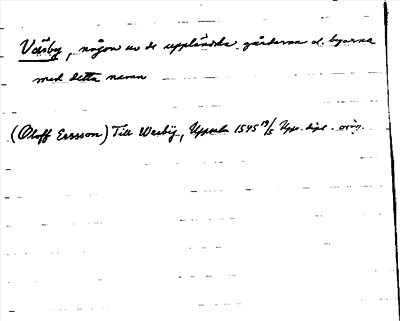 Väsby, någon av de uppländska gårdarna el. byarna
med detta namn
(Oloff Ersson) Till Wesbÿ, Uppsala 1545 19/5 Upps. dipl. orig.